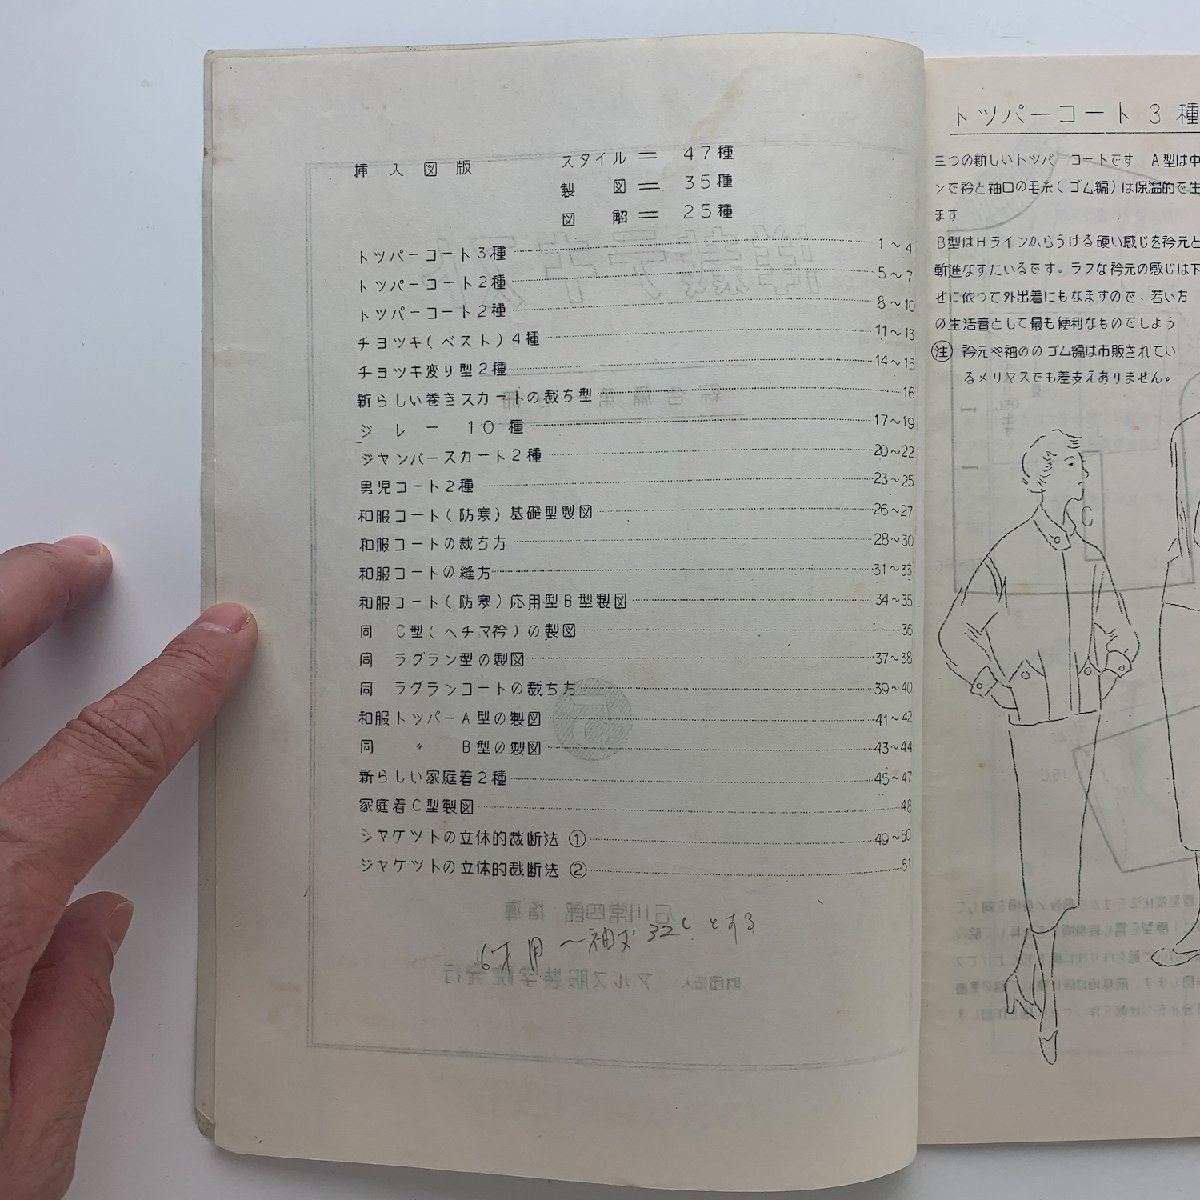 挿入図版
スタイル＝ 47種
製図＝ 35種
図解＝ 25種
トツパーコート3種 1～4
トツパーコート2種 5～7
トツパーコート2種 8～10
チヨツキ(ベスト)4種 11～13
チヨツキ変り型2種 14～15
新らしい巻きスカートの裁ち型 16
ジレー 10種 17～19
ジヤンパースカート2種 20～22
男児コート2種 23～25
和服コート(防寒)基礎型製図 26～27
和服コートの裁ち方 28～30
和服コートの縫方 31～33
和服コート(防寒)応用型B型製図 34～35
同 C型(ヘチマ衿)の製図 36
同 ラグラン型の製図 37～38
同 ラグランコートの裁ち方 39～40
和服トツパーA型の製図 41～42
同 〃 B型の製図 43～44
新らしい家庭着2種 45～47
家庭着C型製図 48
ジヤケツトの立体的裁断法 ① 49～50
ジヤケツトの立体的裁断法 ② 51
6才用 ～袖丈 32c とする
トツパーコート3種
三つの新しいトツパーコートです A型は中
ンで衿と袖口の毛糸(ゴム編)は保温的で生
ます
B型はHラインからうける硬い感じを衿元と
斬進なすたいるです。ラフな衿元の感じは下
せに依つて外出着にもなますので、若い方
の生活着として最も便利なものでしよう
注 衿元や袖ののゴム編は市販されてい
るメリヤスでも差支えありません。